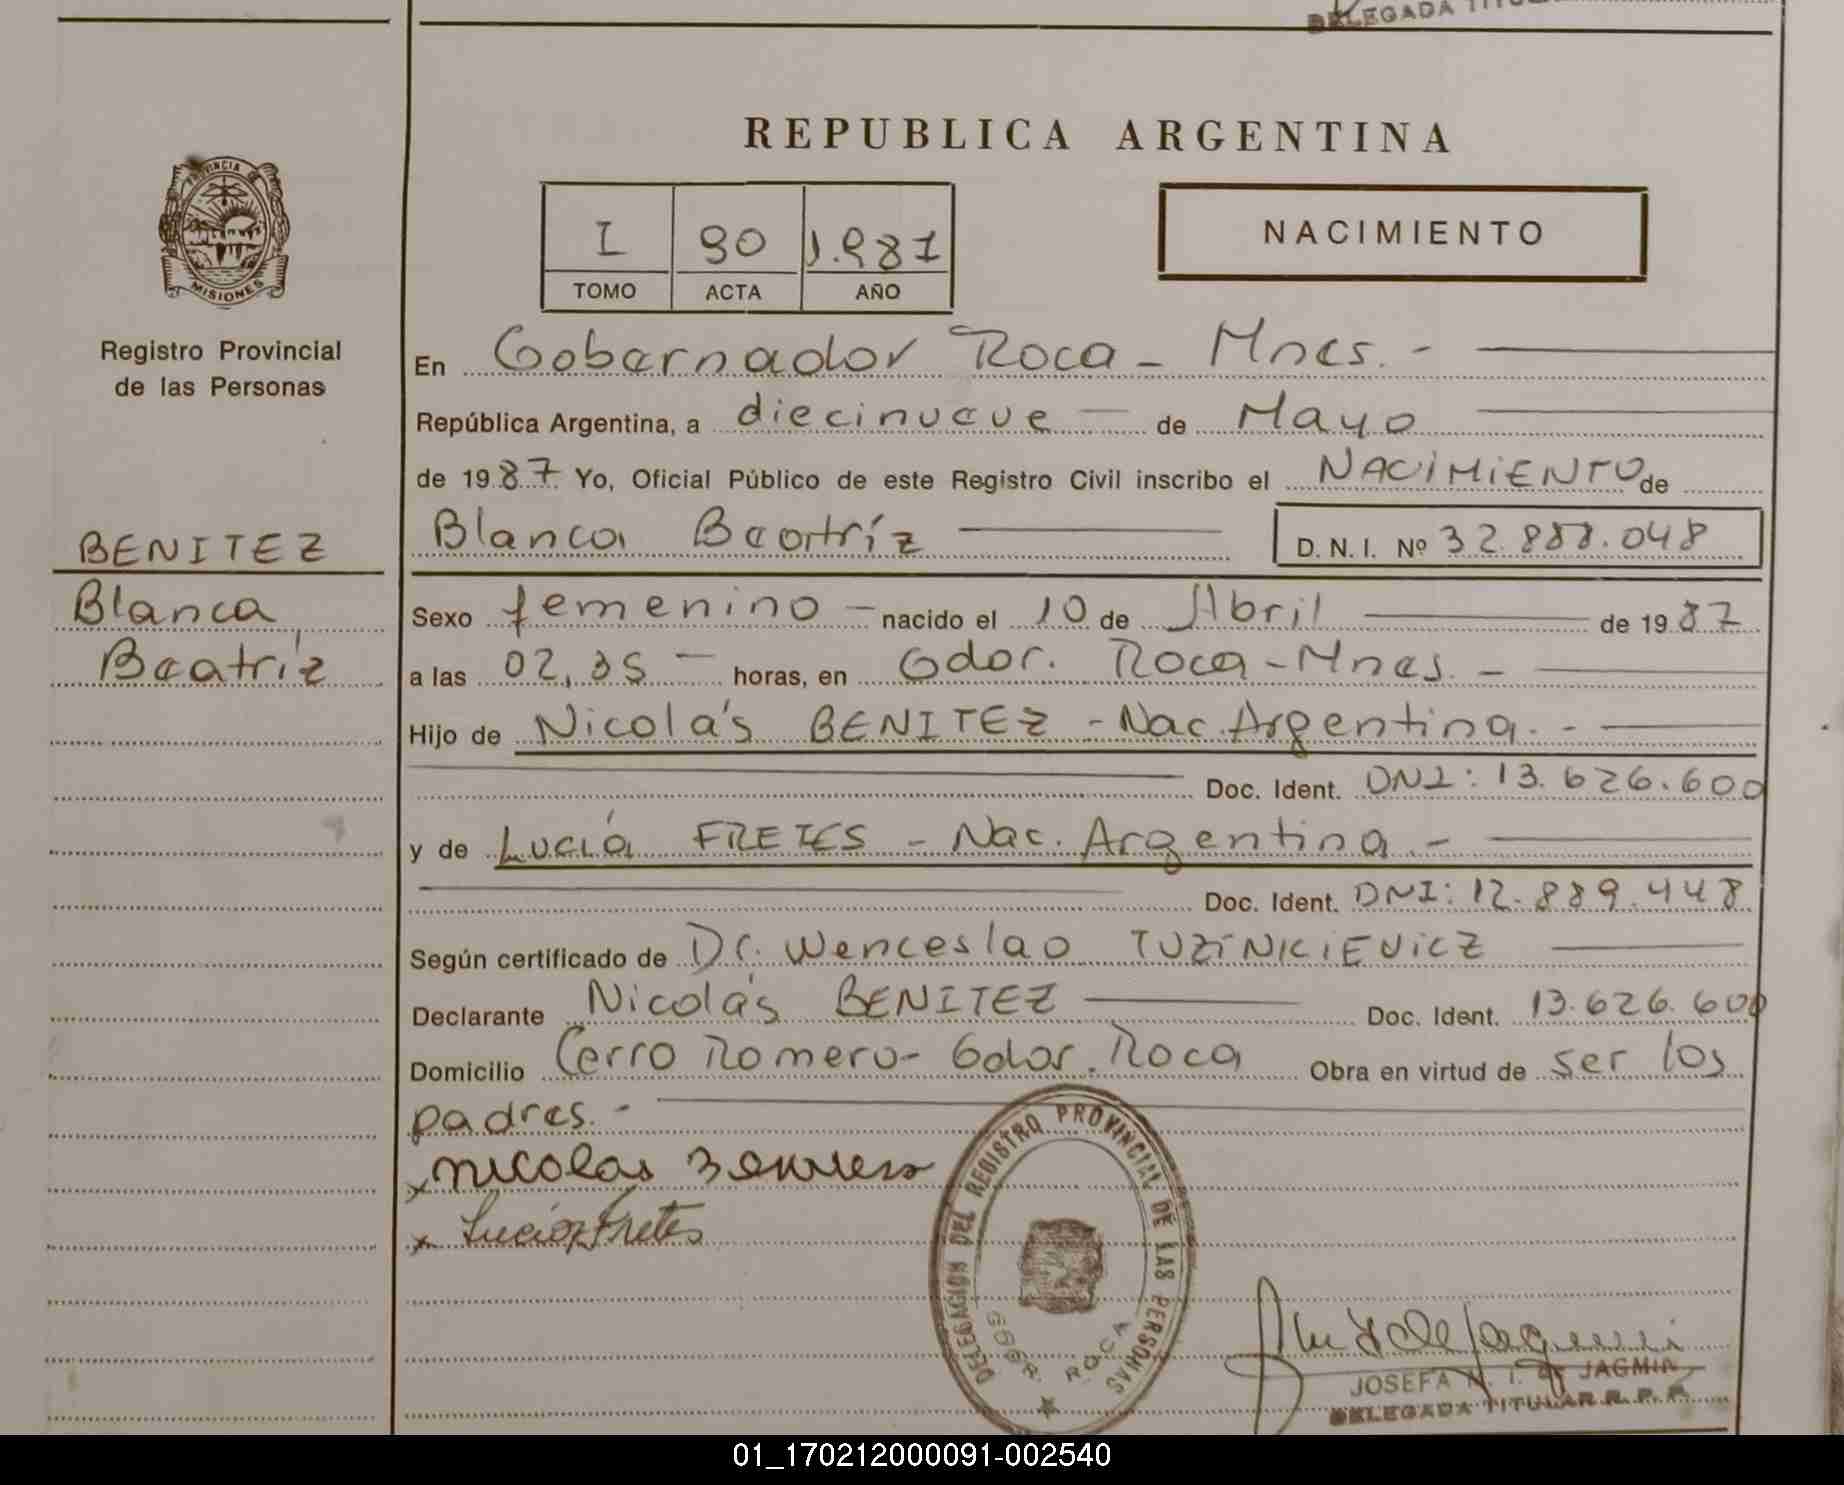 DELEGADA TITU
REPUBLICA ARGENTINA
PROVINCIA DE
MISIONES
Registro Provincial
de las Personas
I 90 1.987
TOMO ACTA AÑO
NACIMIENTO
En Gobernador Roca - Mnes. -
República Argentina, a diecinueve de Mayo
de 1987 Yo, Oficial Público de este Registro Civil inscribo el NACIMIENTO de
BENITEZ
Blanca Beatríz D. N. I. Nº 32.888.048
Blanca
Beatríz
Sexo femenino - nacido el 10 de Abril de 1987
a las 02,35 - horas, en Gdor. Roca - Mnes. -
Hijo de Nicolás BENITEZ - Nac. Argentina. -
Doc. Ident. DNI: 13.626.600
y de Lucía FRETES - Nac. Argentina. -
Doc. Ident. DNI: 12.889.448
Según certificado de Dr. Wenceslao TUZINKIEVICZ
Declarante Nicolás BENITEZ Doc. Ident. 13.626.600
Domicilio Cerro Romero - Gdor. Roca Obra en virtud de ser los
padres. -
x nicolas
x Lucía Fretes
DELEGACION DEL REGISTRO PROVINCIAL DE LAS PERSONAS
GBOR. ROCA
JOSEFA N. I. de JAGMIN
DELEGADA TITULAR R. P. P.
01_170212000091-002540